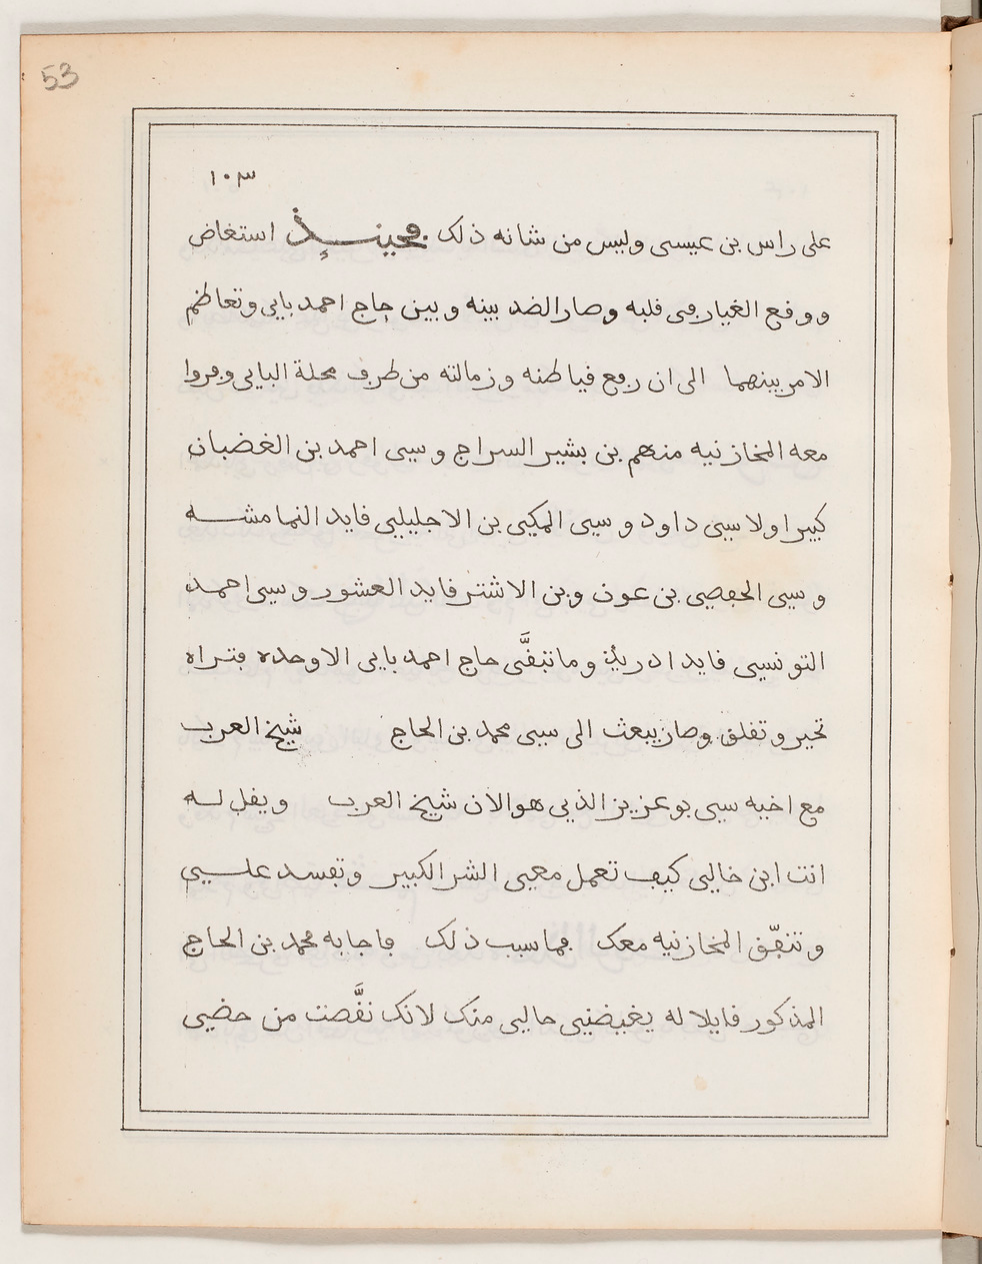 53
١٠٣
على راس بن عيسى وليس من شانه ذلك فحينـــذٍ استغاض
ووقع الغيار في قلبه وصار الضد بينه وبين حاج احمد باي وتعاظم
الامر بينهما الى ان رفع قياطنه وزمالته من طرف محلة الباي وفروا
معه المخازنيه منهم بن بشير السراج وسي احمد بن الغضبان
كبير اولا سي داود وسي المكي بن الاجليلي قايد النمامشـــه
وسي الحفصي بن عون وبن الاشتر قايد العشور وسي احمد
التونسي قايد ادريد وما تبقَّى حاج احمد باي الا وحده فتراه
تحير وتقلق وصار يبعث الى سي محمد بن الحاج شيخ العرب
مع اخيه سي بوعزيز الذي هو الان شيخ العرب ويقل لــه
انت ابن خالي كيف تعمل معي الشر الكبير وتفسد علـــي
وتنفّق المخازنيه معك فما سبب ذلك فاجابه محمد بن الحاج
المذكور قايلا له يغيضني حالي منك لانك نقَّصت من حضي